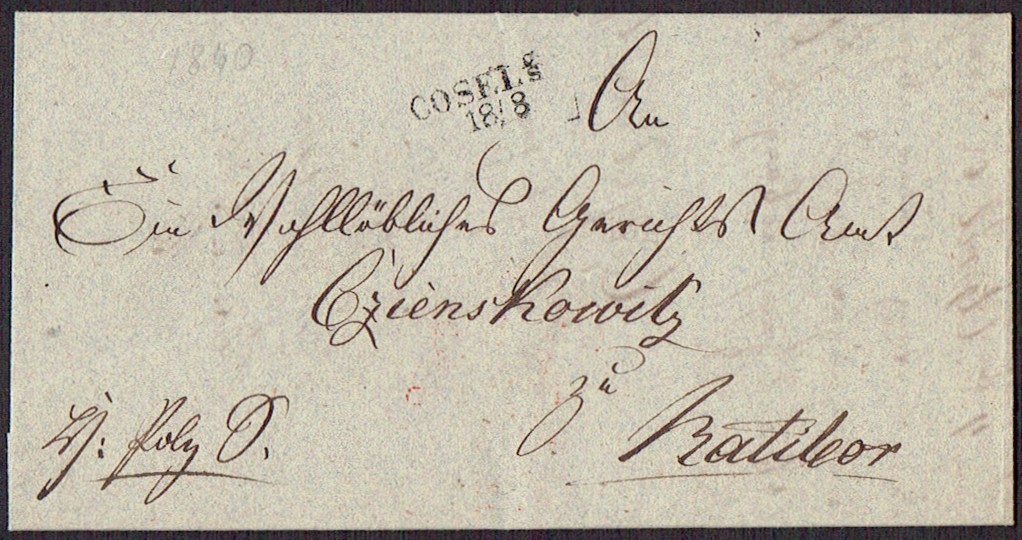 1840
COSEL
18/8
An
Ein Wohllöbliches Gerichts Amt
Czienskowitz
zu
Ratibor